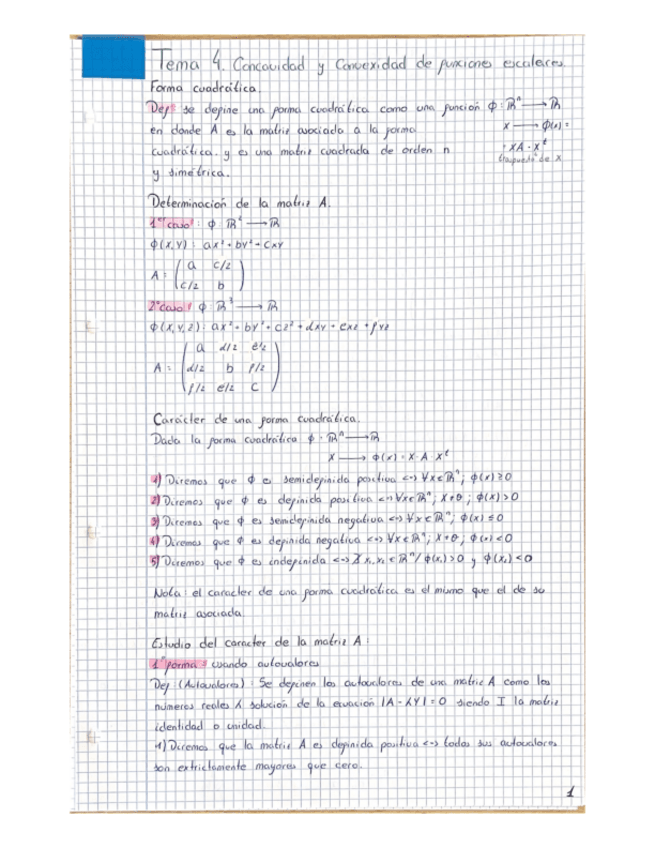 Tema 4. Concavidad y Convexidad de funciones escalares.
Forma cuadrática
Def: se define una forma cuadrática como una función ϕ: ℝⁿ → ℝ
en donde A es la matriz asociada a la forma x → ϕ(x) =
cuadrática. y es una matriz cuadrada de orden n = xA · xᵗ
y simétrica. traspuesta de x
Determinación de la matriz A.
1er caso: ϕ: ℝ² → ℝ
ϕ(x,y) = ax² + by² + cxy
a c/2
A =
c/2 b
2º caso: ϕ: ℝ³ → ℝ
ϕ(x,y,z) = ax² + by² + cz² + dxy + exz + fyz
a d/2 e/2
A = d/2 b f/2
f/2 e/2 c
Carácter de una forma cuadrática.
Dada la forma cuadrática ϕ: ℝⁿ → ℝ
x → ϕ(x) = x · A · xᵗ
1) Diremos que ϕ es semidefinida positiva <=> ∀x∈ℝⁿ; ϕ(x) ≥ 0
2) Diremos que ϕ es definida positiva <=> ∀x∈ℝⁿ; x≠θ; ϕ(x) > 0
3) Diremos que ϕ es semidefinida negativa <=> ∀x∈ℝⁿ; ϕ(x) ≤ 0
4) Diremos que ϕ es definida negativa <=> ∀x∈ℝⁿ; x≠θ; ϕ(x) < 0
5) Diremos que ϕ es indefinida <=> ∃ x₁, x₂ ∈ ℝⁿ / ϕ(x₁) > 0 y ϕ(x₂) < 0
Nota: el caracter de una forma cuadrática es el mismo que el de su
matriz asociada
Estudio del caracter de la matriz A:
1ª forma: usando autovalores
Def (Autovalores): Se definen los autovalores de una matriz A como los
números reales λ solución de la ecuación |A - λI| = 0 siendo I la matriz
identidad o unidad.
1) Diremos que la matriz A es definida positiva <=> todos sus autovalores
son extrictamente mayores que cero.
1